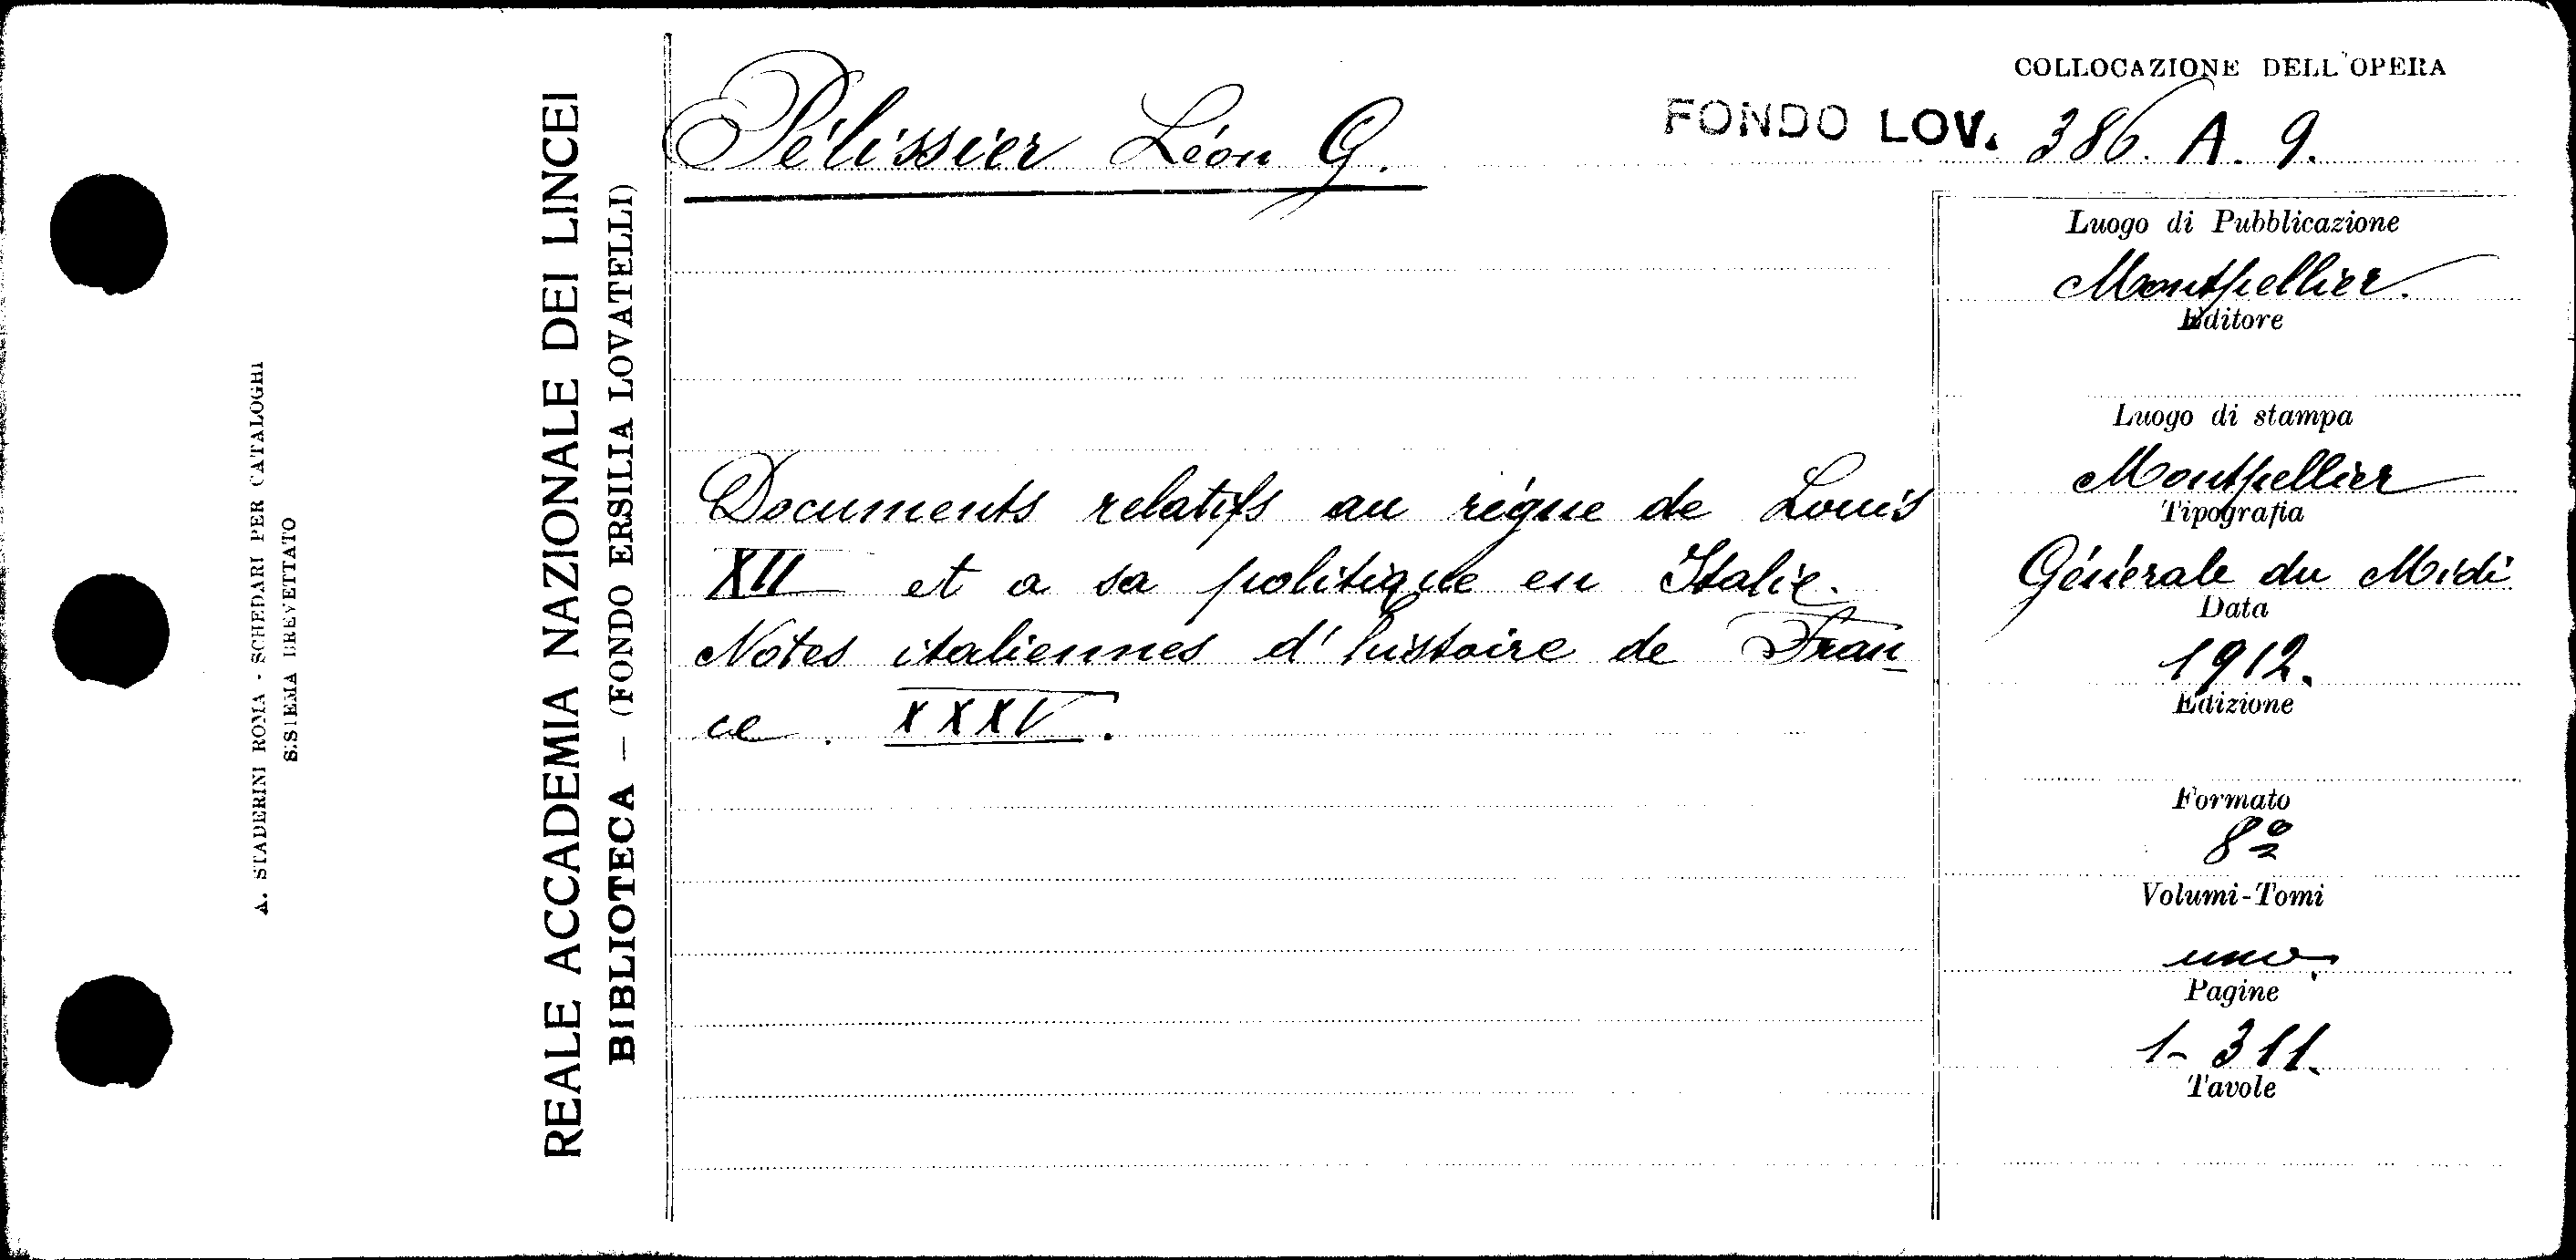 A. STADERINI ROMA - SCHEDARI PER CATALOGHI
SISTEMA BREVETTATO
REALE ACCADEMIA NAZIONALE DEI LINCEI
BIBLIOTECA — (FONDO ERSILIA LOVATELLI)
COLLOCAZIONE DELL'OPERA
Pélissier Léon G.
FONDO LOV. 386. A. 9.
Documents relatifs au règne de Louis
XII et a sa politique en Italie.
Notes italiennes d'histoire de Fran-
ce. XXXV.
Luogo di Pubblicazione
Montpellier.
Editore
Luogo di stampa
Montpellier
Tipografia
Générale du Midi
Data
1912.
Edizione
Formato
8º
Volumi-Tomi
uno.
Pagine
1-311.
Tavole